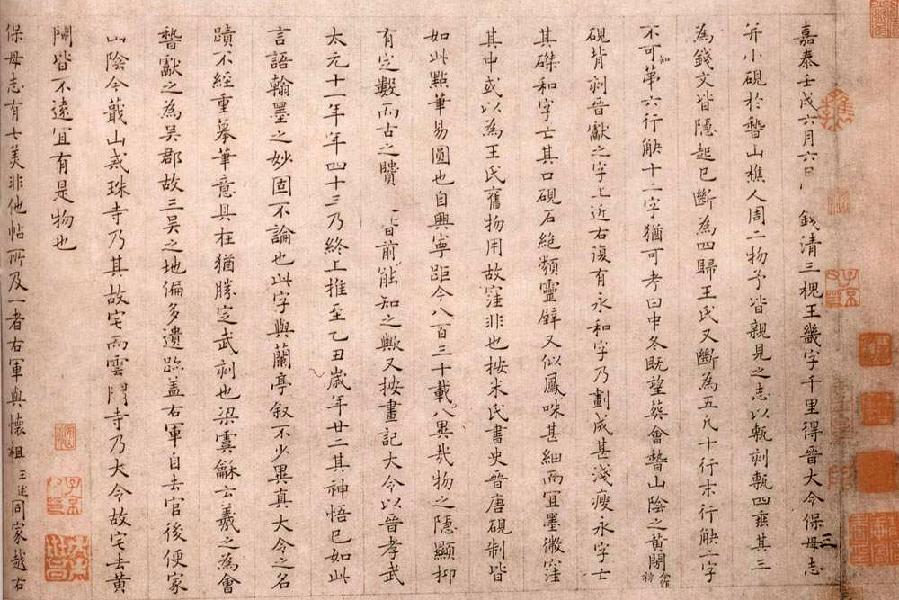 嘉泰壬戌六月六日錢清三槐王畿字千里得晉大令保母志
并小硯於稽山樵人周二物予皆親見之志以甎刻甎四垂其三
為錢文皆隱起已斷為四歸王氏又斷為五凡十行末行缺二字
不可知第六行缺十二字猶可考曰中冬既望葬會稽山陰之黃閍
硯背刻晉獻之字上近右復有永和字乃劃成甚淺瘦永字亡
其磔和字亡其口硯石絕類靈壁又似鳳咮甚細而宜墨微窪
其中或以為王氏舊物用故窪非也按米氏書史晉唐硯制皆
如此點筆易圓也自興寧距今八百三十載八異哉物之隱顯抑
有定數而古之賢皆前能知之歟又按畫記大令以晉孝武
太元十一年年四十三乃終上推至乙丑歲年廿二其神悟已如此
言語翰墨之妙固不論也此字與蘭亭叙不少異真大令之名
蹟不經重摹筆意具在猶勝定武刻也梁虞龢云羲之為會
稽獻之為吳郡故三吳之地偏多遺跡蓋右軍自去官後便家
山陰今蕺山戒珠寺乃其故宅而雲門寺乃大令故宅去黃
閍皆不遠宜有是物也
保母志有七美非他帖所及一者右軍與懷祖王述同家越右